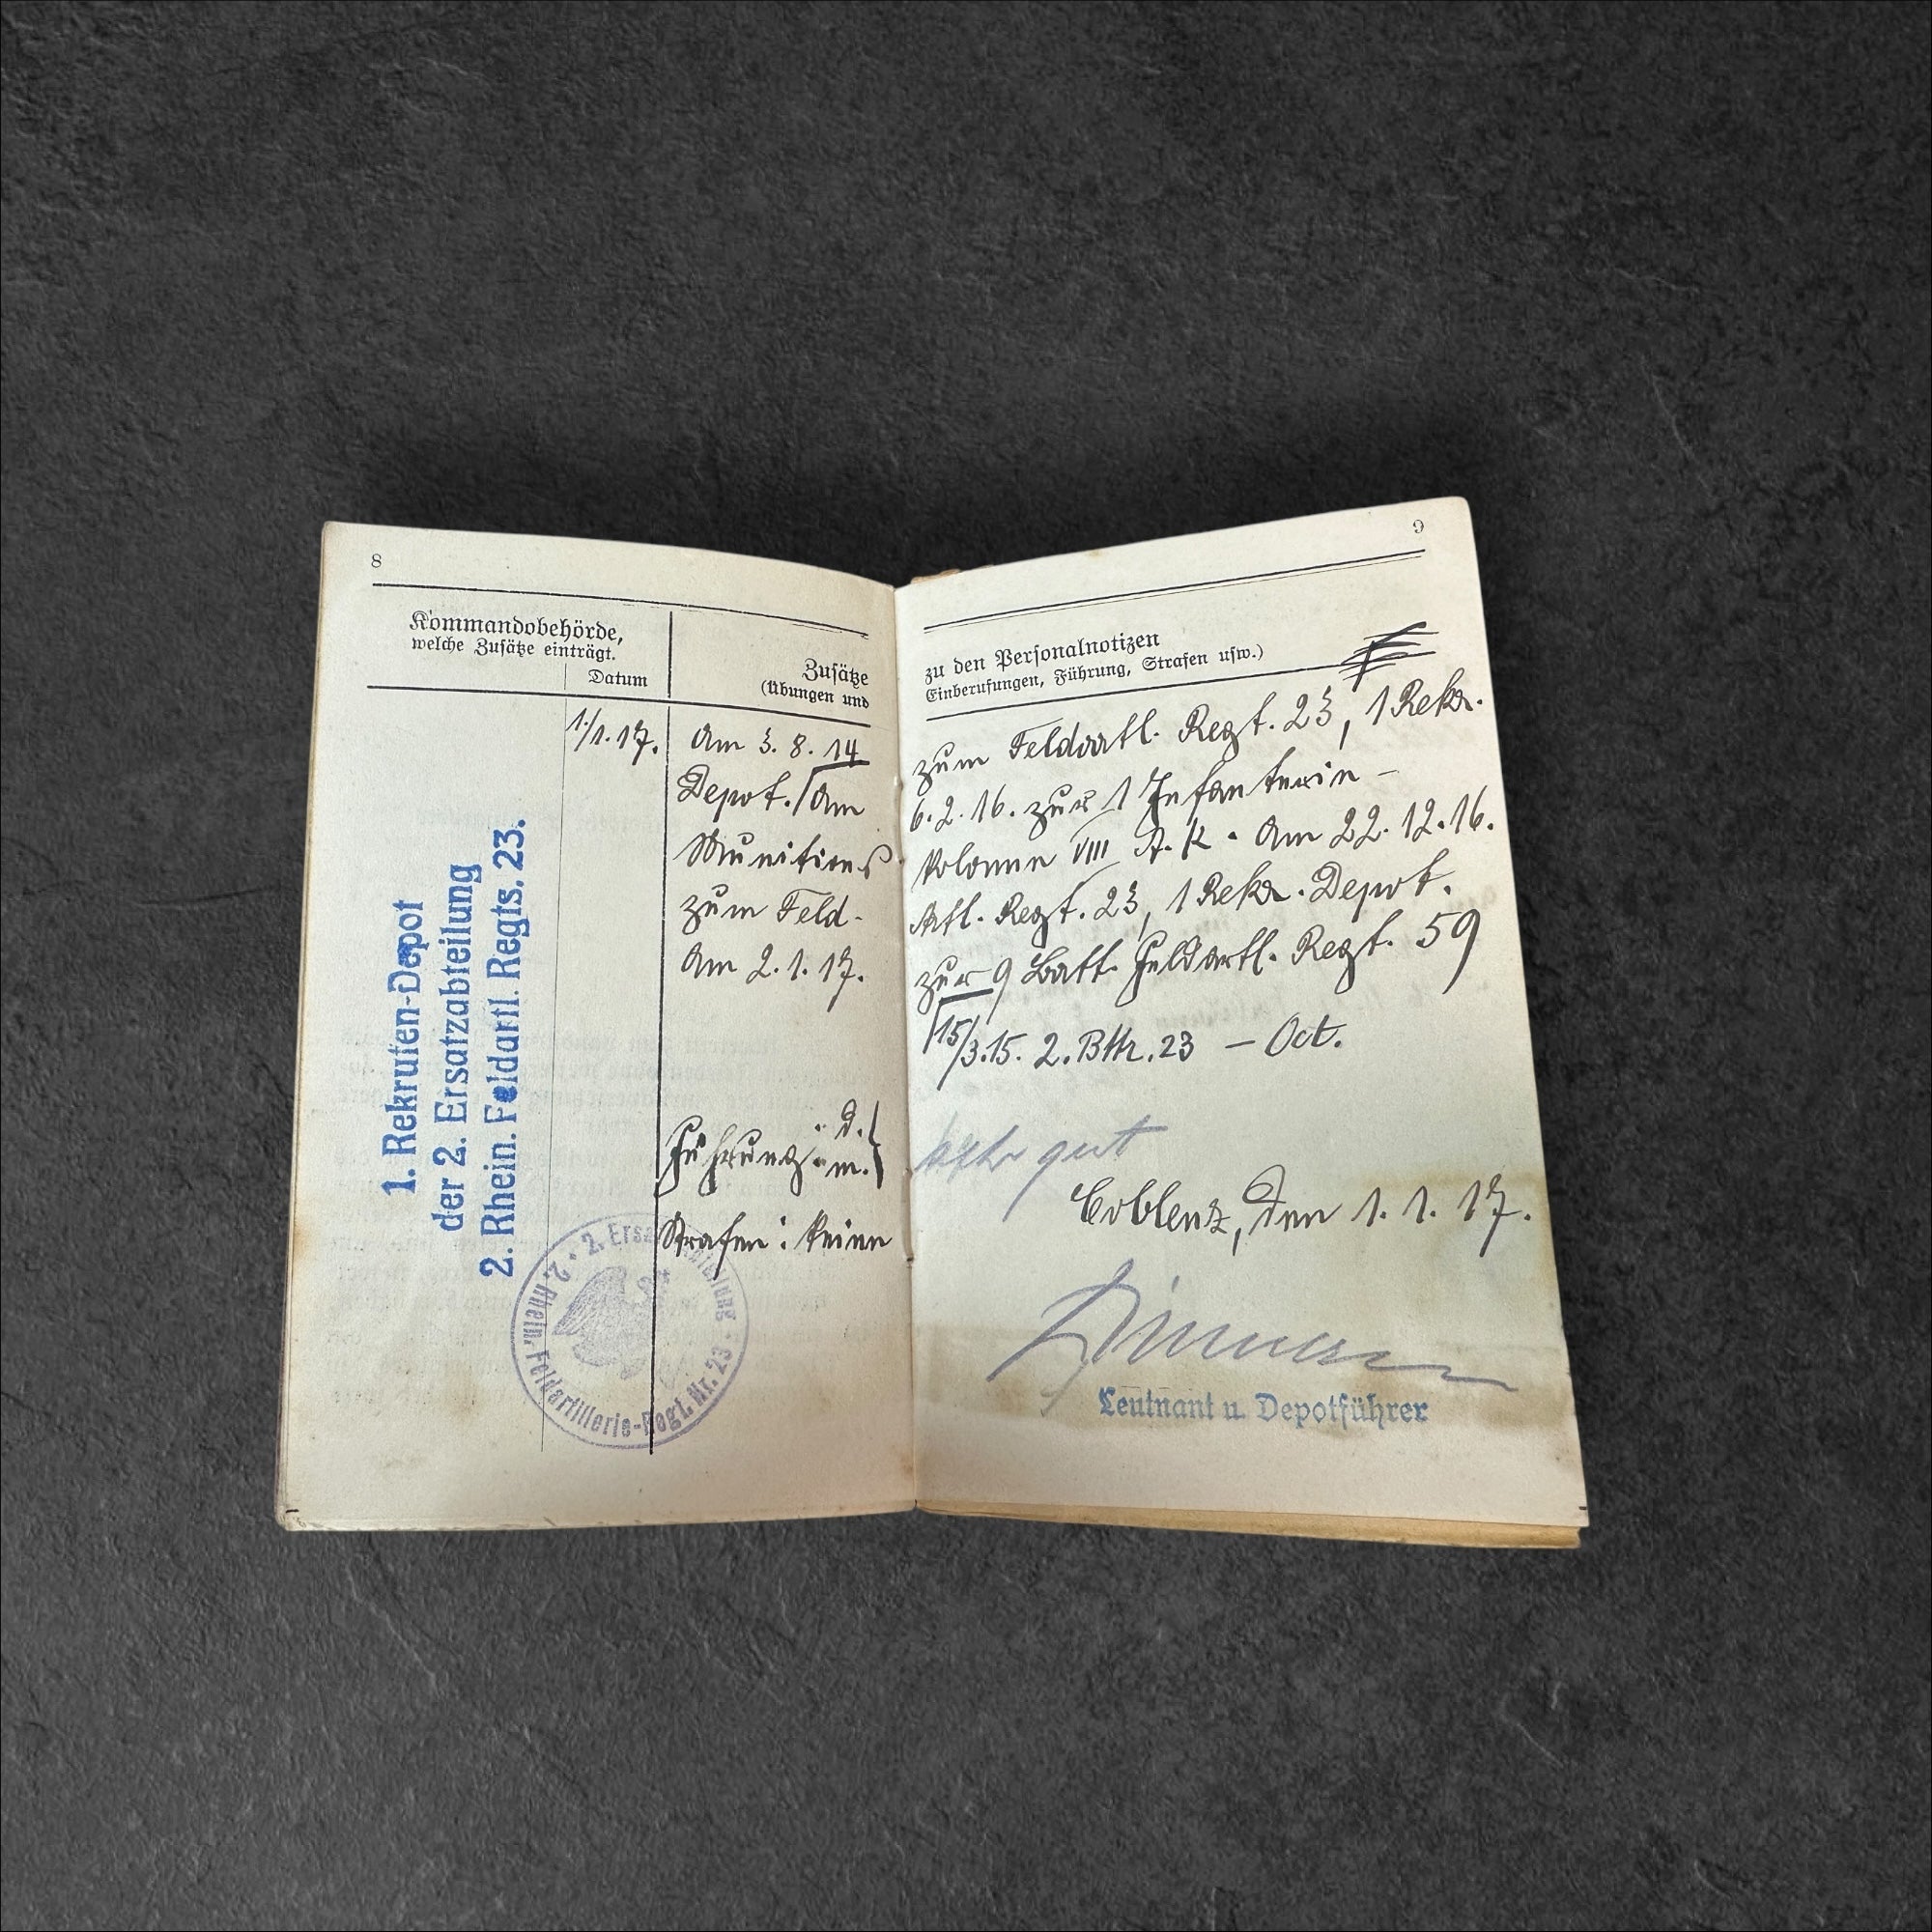 8
Kommandobehörde,
welche Zusätze einträgt.
Datum
Zusätze
(Übungen und
1./1.17.
Am 3. 8. 14
Depot. Am
Munitions
zum Feld-
Am 2. 1. 17.
Führung: d.
m.
Strafen: keine
1. Rekruten-Depot
der 2. Ersatzabteilung
2. Rhein. Feldartl. Regts. 23.
2. Ersatzabteilung
2. Rhein. Feldartillerie-Regt. Nr. 23
9
zu den Personalnotizen
Einberufungen, Führung, Strafen usw.)
zum Feldartl. Regt. 23, 1 Rekr.
6. 2. 16. zur 1 Infanterie-
Kolonne VIII A. K. Am 22. 12. 16.
Artl. Regt. 23, 1 Rekr. Depot.
zur 9 Batt. Feldartl. Regt. 59
15/3.15. 2. Bttr. 23 – Oct.
sehr gut
Coblenz, den 1. 1. 17.
Leutnant u. Depotführer